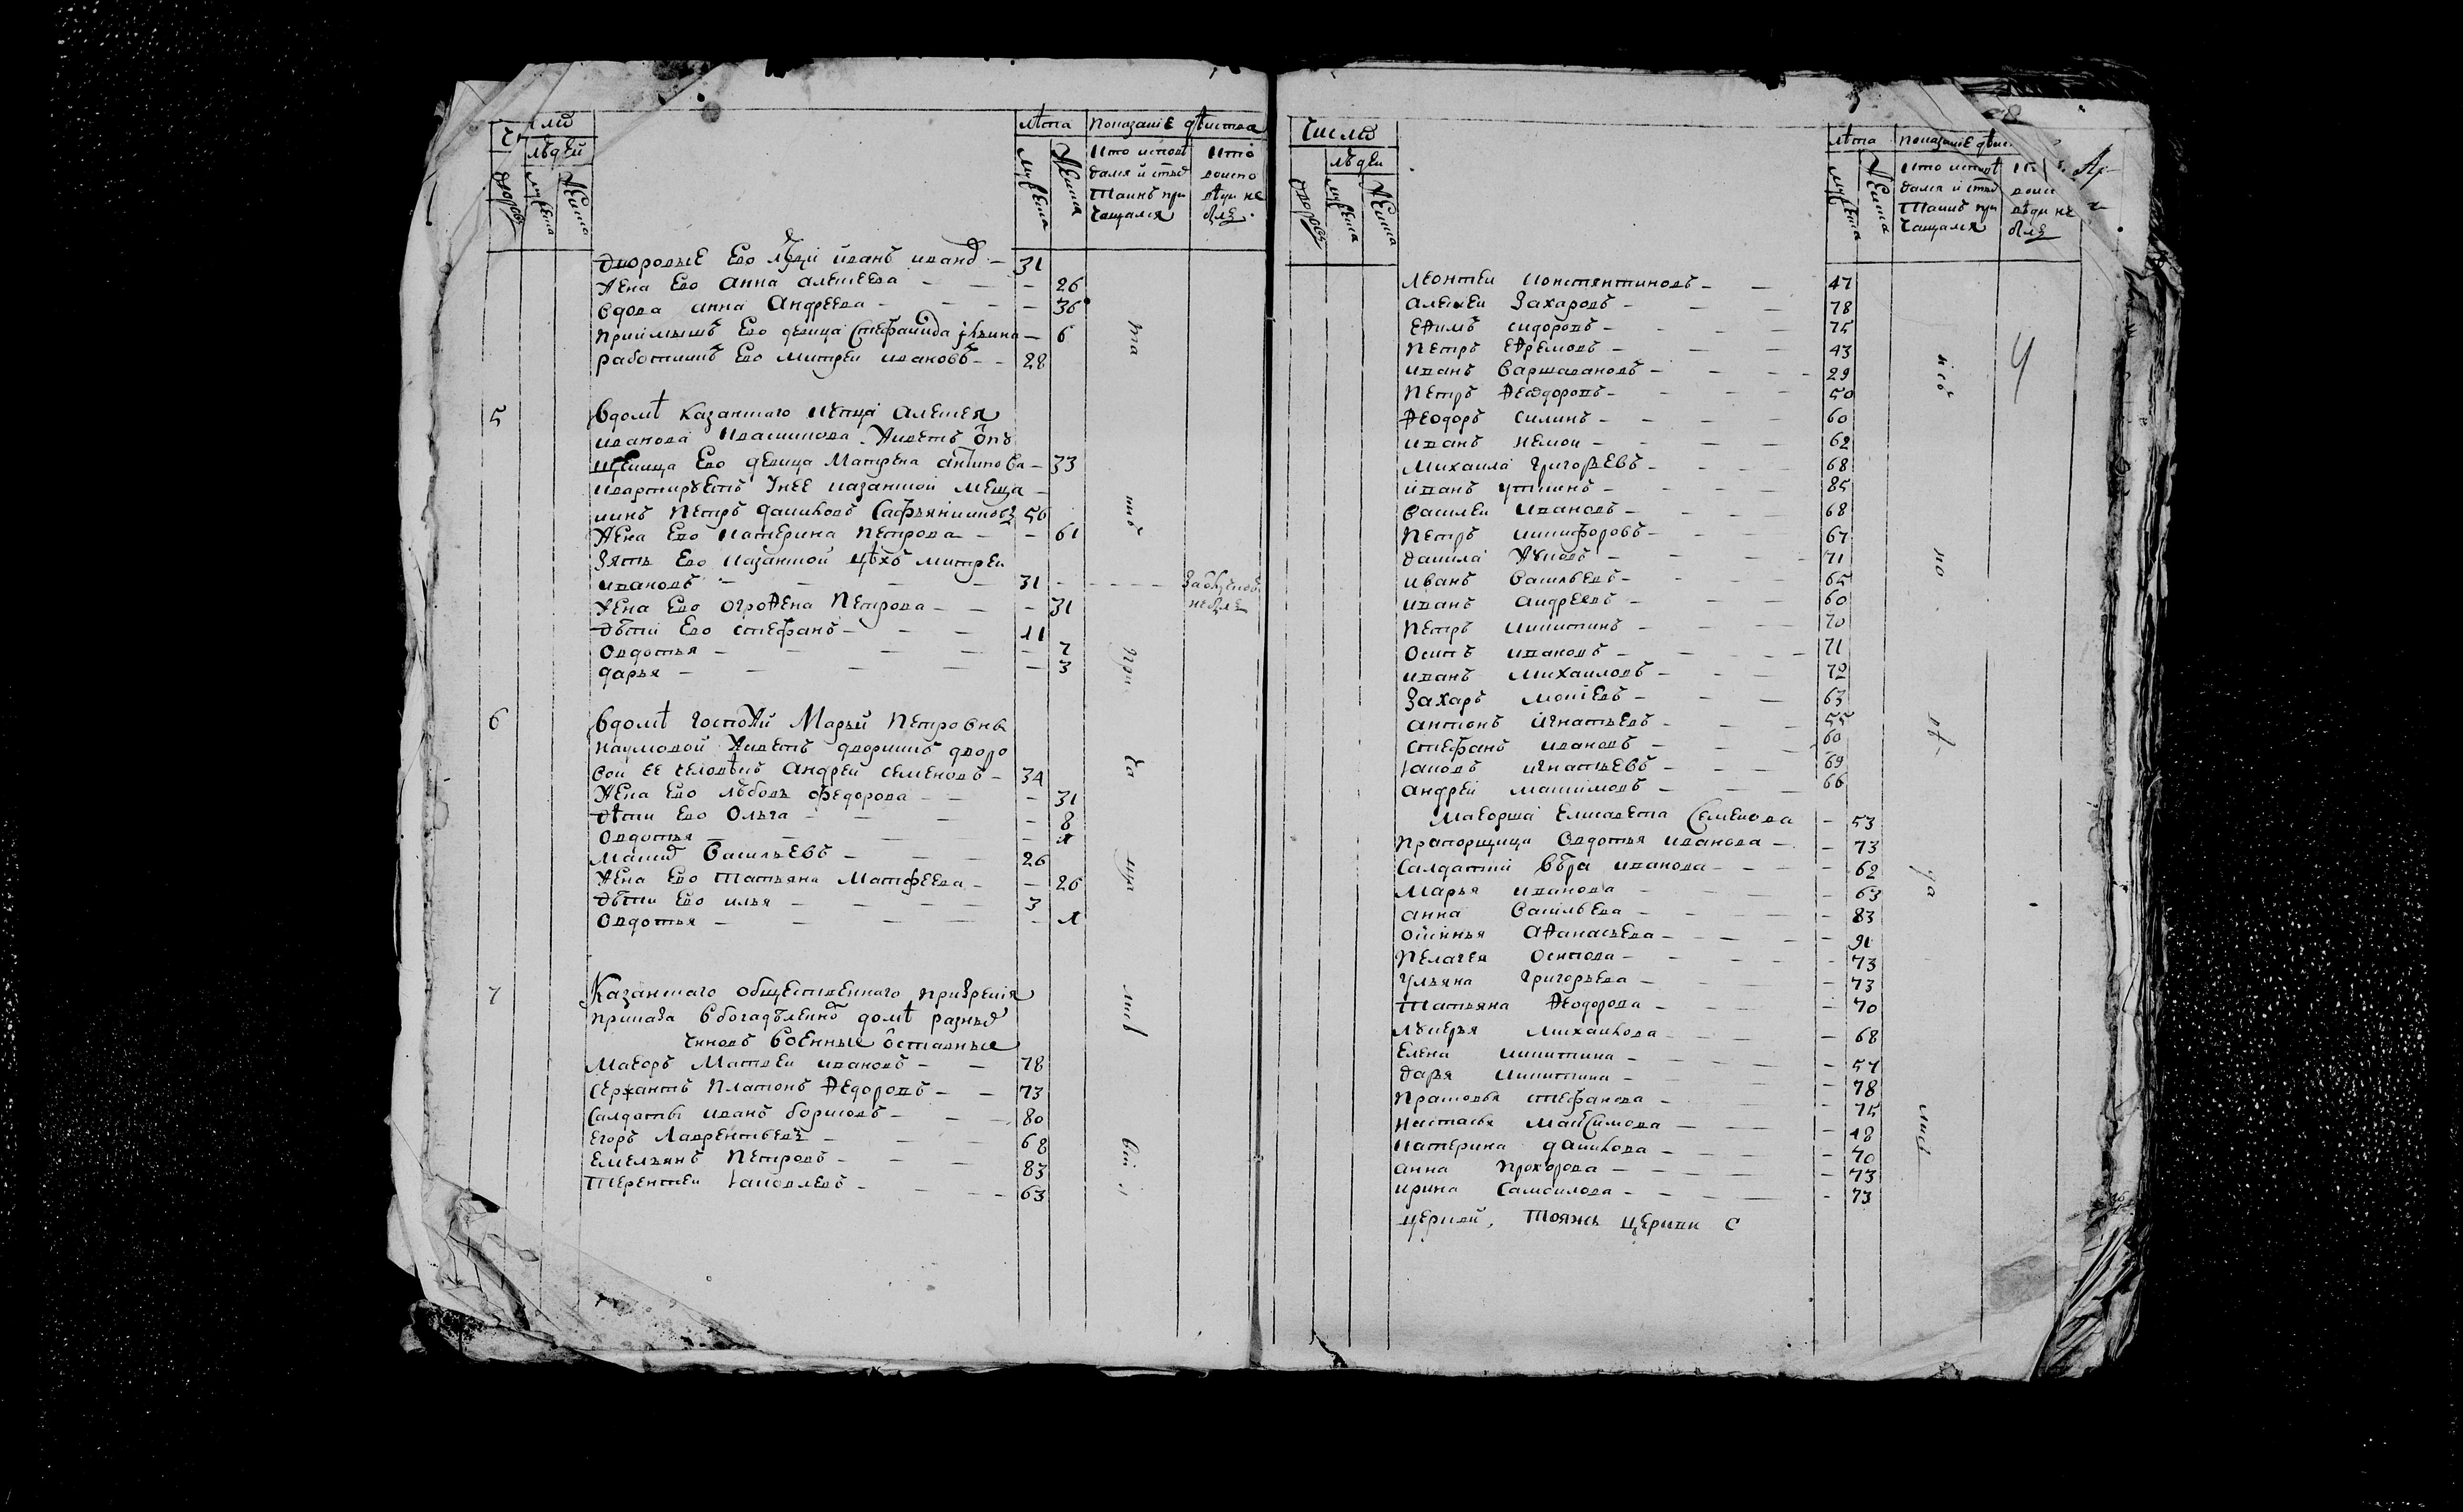 Число
людей
дворовъ
мужеска
женска
лѣта
мужеска
женска
показаніе дѣиства
кто исповѣ
дался и стых
таинъ при
чащался
кто
воиспо
вѣди не
былъ
дворовые ево люди иванъ иванов 31
жена ево анна алексѣева 26
вдова анна Андреева 36
приимышъ ево девица Стефанида 6
работникъ ево митреи ивановъ 28
5
вдомѣ казанскаго купца алексея
иванова живетъ
девица Матрена антипова 33
квартируетъ унее казанской меща
нинъ петръ даниловъ 56
жена ево катерина петрова 61
зять ево казанской цѣхъ митреи
ивановъ 31
не былъ
жена ево огрофена петрова 31
дѣти ево стефанъ 11
овдотья 7
дарья 3
6
вдомѣ госпожи Марьи петровны
наумовой живетъ дворникъ дворо
вои ее человѣкъ андреи семеновъ 34
жена ево любовь федорова 31
дѣти ево Ольга 8
овдотья 1
василъевъ 26
жена ево татьяна матфеева 26
дѣти ево илья 3
овдотья 1
7
Казанскаго общественнаго призренія
приказа вбогадѣленно домѣ разных
чиновъ военные отставные
маеоръ матвеи ивановъ 78
сержантъ платонъ федоровъ 73
салдаты иванъ борисовъ 80
егоръ лаврентьевъ 68
емельянъ петровъ 83
терентеи iаковлевъ 63
Число
людеи
дворовъ
мужеска
женска
лѣта
мужеска
женска
показаніе
кто исповѣ
дался и стых
таинъ при
чащался
воис
вѣди не
былъ
леонтеи константиновъ 47
алексеи захаровъ 78
ефимъ сидоровъ 75
петръ ефремовъ 43
иванъ варшавановъ 29
петръ феодоровъ 50
феодоръ силинъ 60
иванъ немои 62
михаила григорьевъ 68
иванъ 85
василеи ивановъ 68
петръ никифоровъ 67
данила жуковъ 71
иванъ василъевъ 65
иванъ андреевъ 60
петръ никитинъ 70
осипъ ивановъ 71
иванъ михаиловъ 72
захаръ 63
антонъ игнатьевъ 55
стефанъ ивановъ 60
iаковъ игнатьевъ 69
андреи максимовъ 66
маеорша елисавета семенова 53
прапорщица овдотья иванова 73
салдатки вѣра иванова 62
марья иванова 63
анна василъева 83
афанасьева 91
пелагея осипова 73
ульяна григорьева 73
татьяна феодорова 70
лукерья михаилова 68
елена никитина 57
дарья никитина 78
прасковья стефанова 75
настасья максимова 48
катерина данилова 70
анна прохорова 73
ирина самоилова 73
церкви С